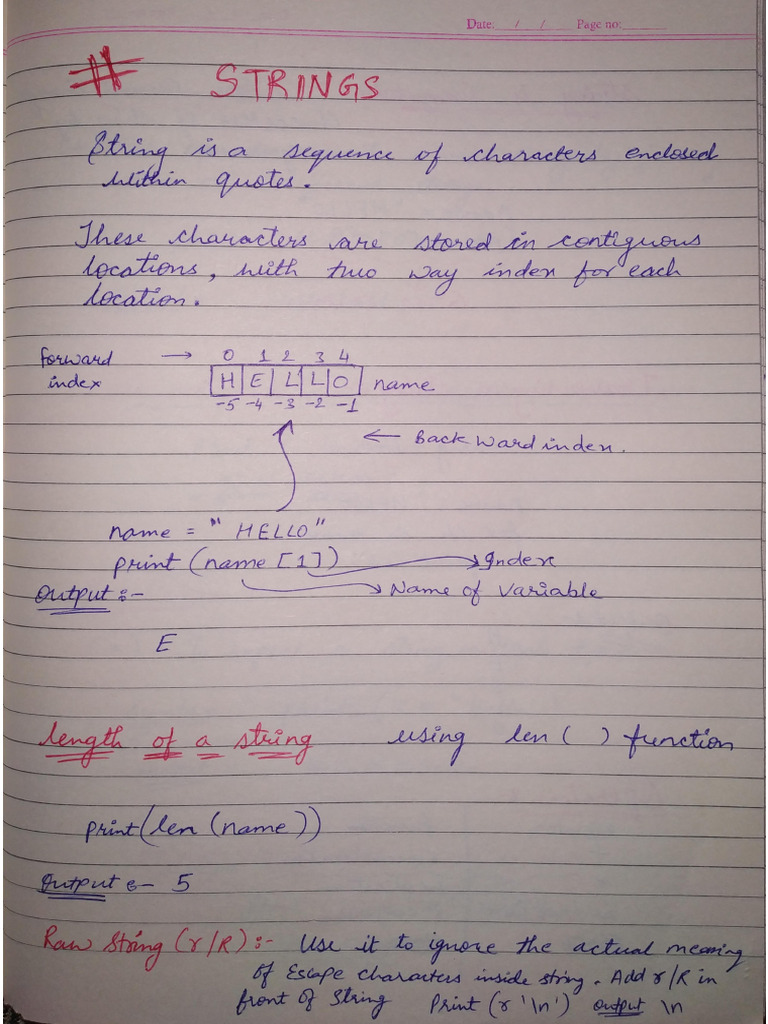 Date: / / Page no:
# STRINGS
String is a sequence of characters enclosed
within quotes.
These characters are stored in contiguous
locations, with two way index for each
location.
forward → 0 1 2 3 4
index H E L L O name
-5 -4 -3 -2 -1
← Backward index.
name = "HELLO"
print (name [1]) → Index
Output :- → Name of Variable
E
length of a string using len ( ) function
print (len (name))
Output :- 5
Raw String (r/R) :- Use it to ignore the actual meaning
of Escape characters inside string. Add r/R in
front of String Print (r '\n') output \n